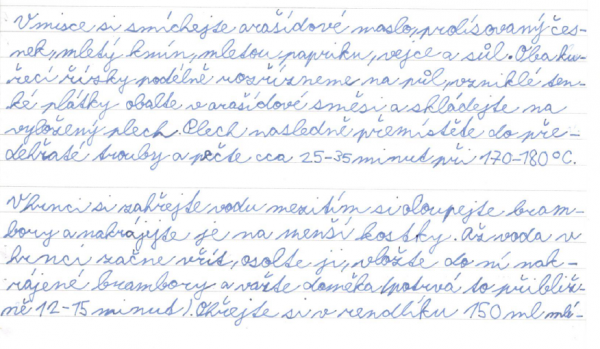 V misce si smíchejte arašídové máslo, prolisovaný čes-
nek, mletý kmín, mletou papriku, vejce a sůl. Oba ku-
řecí řízky podélně rozřízneme na půl, vzniklé ten-
ké plátky obalte v arašídové směsi a skládejte na
vyložený plech. Plech následně přemístěte do pře-
dehřáté trouby a pečte cca 25-35 minut při 170-180°C.
V hrnci si zahřejte vodu mezitím si oloupejte bram-
bory a nakrájejte je na menší kostky. Až voda v
hrnci začne vřít, osolte ji, vložte do ní nak-
rájené brambory a vařte doměkka (potrvá to přibliž-
ně 12-15 minut). Ohřejte si v rendlíku 150 ml mlé-